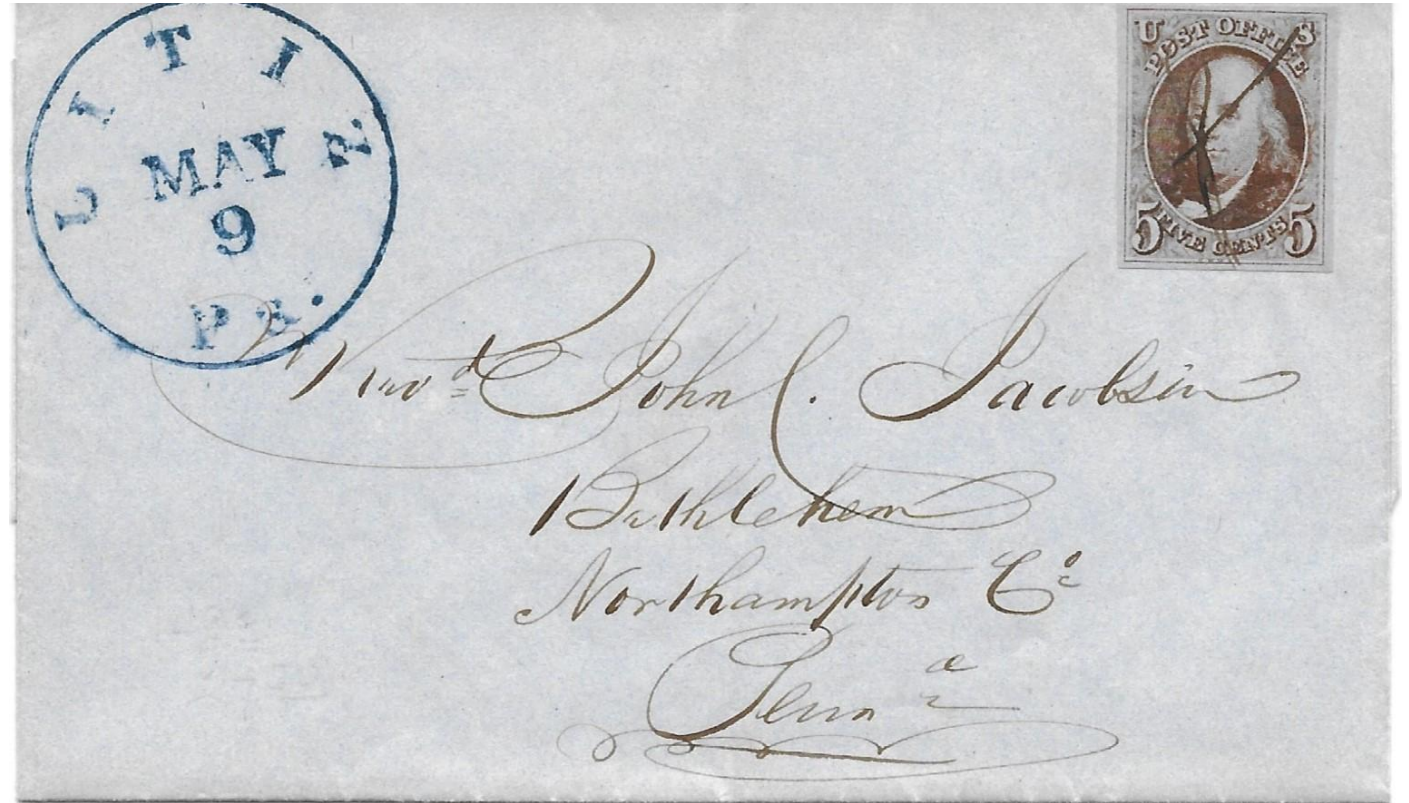 LITIZ
MAY
9
Pa.
U S
POST OFFICE
5 FIVE CENTS 5
Revd. John C. Jacobson
Bethlehem
Northampton Co
Penna